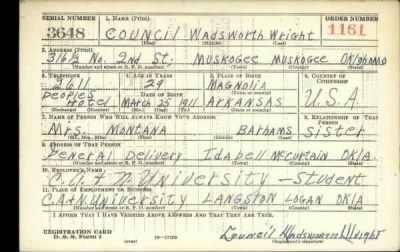 SERIAL NUMBER 1. NAME (Print) ORDER NUMBER
3648 COUNCIL WADSWORTH WRIGHT 1161
(First) (Middle) (Last)
2. ADDRESS (Print)
316½ No. 2nd St. MUSKOGEE MUSKOGEE OKlahoma
(Number and street or R. F. D. number) (Town) (County) (State)
3. TELEPHONE 4. AGE IN YEARS 5. PLACE OF BIRTH 6. COUNTRY OF CITIZENSHIP
2611 29 MAGNOLIA
Peoples DATE OF BIRTH (Town or county) U.S.A.
Hotel MARCH 25 1911 ARKANSAS
7. NAME OF PERSON WHO WILL ALWAYS KNOW YOUR ADDRESS 8. RELATIONSHIP OF THAT PERSON
Mrs. MONTANA Barhams sister
(Mr., Mrs., Miss) (First) (Middle) (Last)
9. ADDRESS OF THAT PERSON
General Delivery Idabell McCurtain OKla.
(Number and street or R. F. D. number) (Town) (County) (State)
10. EMPLOYER'S NAME
University — Student
11. PLACE OF EMPLOYMENT OR BUSINESS
University LANGSTON LOGAN OKla
(Number and street or R. F. D. number) (Town) (County) (State)
I AFFIRM THAT I HAVE VERIFIED ABOVE ANSWERS AND THAT THEY ARE TRUE.
REGISTRATION CARD
D. S. S. Form 1 (over) 16—17105 Council Wadsworth Wright